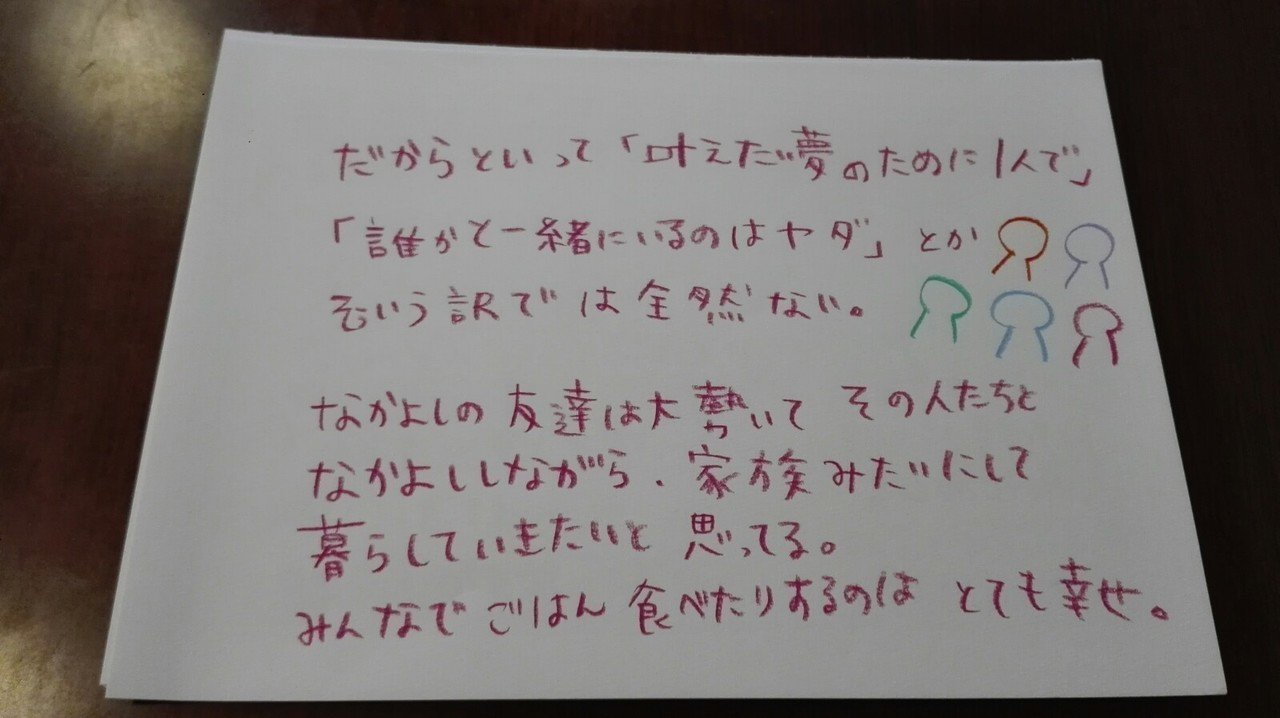 だからといって「叶えたい夢のために1人で」
「誰かと一緒にいるのはヤダ」とか
そいう訳では全然ない。
なかよしの友達は大勢いて その人たちと
なかよししながら、家族みたいにして
暮らしていきたいと思ってる。
みんなでごはん食べたりするのは とても幸せ。